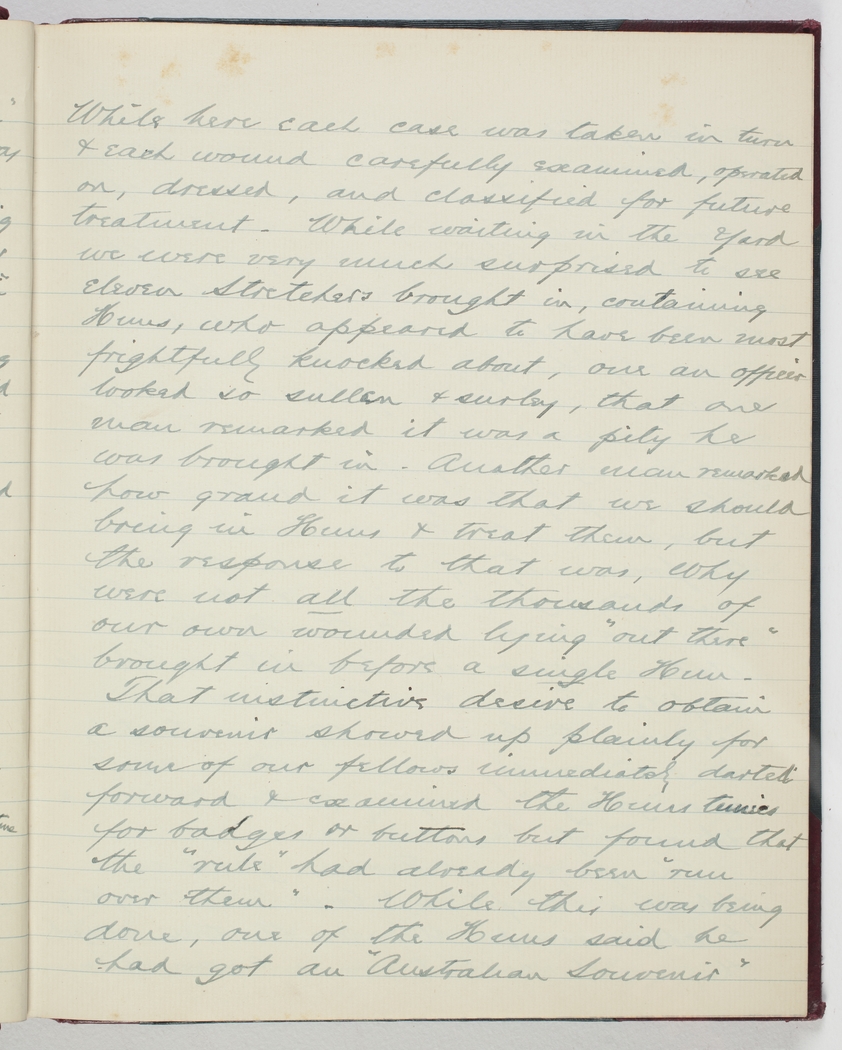 While here each case was taken in turn
& each wound carefully examined, operated
on, dressed, and classified for future
treatment - While waiting in the Yard
we were very much surprised to see
eleven Stretchers brought in, containing
Huns, who appeared to have been most
frightfully knocked about, one an officer
looked so sullen & surley, that one
man remarked it was a pity he
was brought in. Another man remarked
how grand it was that we should
bring in Huns & treat them, but
the response to that was, Why
were not all the thousands of
our own wounded lying "out there"
brought in before a single Hun -
That instinctive desire to obtain
a souvenir showed up plainly for
some of our fellows immediately darted
forward & examined the Huns tunics
for badges or buttons but found that
the "rule" had already been "run
over them". While this was being
done, one of the Huns said he
had got an "Australian Souvenir"